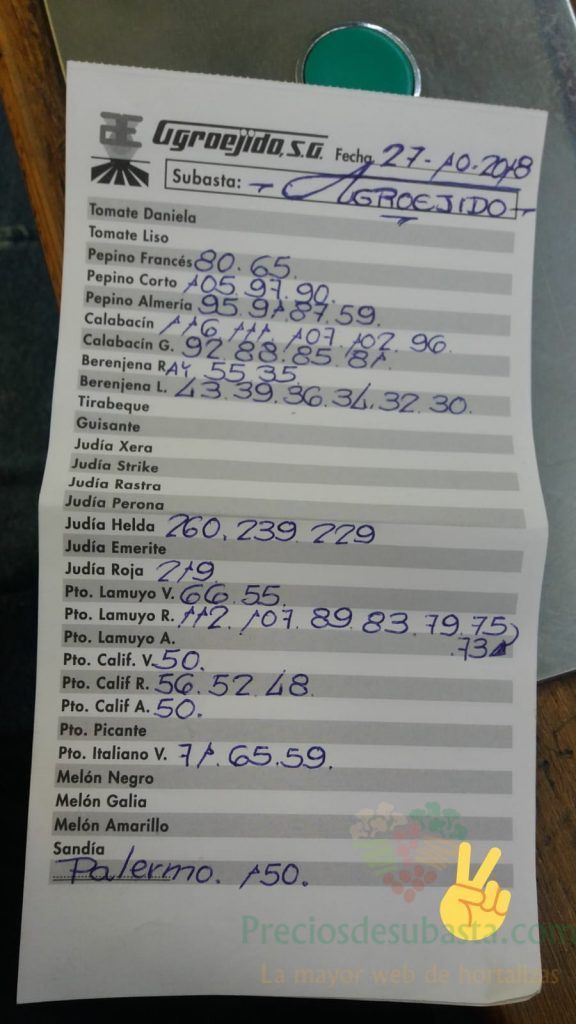 Agroejido, S.A. Fecha 27-10-2018
Subasta: - AGROEJIDO -
Tomate Daniela
Tomate Liso
Pepino Francés 80. 65.
Pepino Corto 105. 97. 90.
Pepino Almería 95. 91. 87. 59.
Calabacín 116. 111. 107. 102. 96.
Calabacín G. 92. 88. 85. 81.
Berenjena RAY. 55. 35.
Berenjena L. 43. 39. 36. 34. 32. 30.
Tirabeque
Guisante
Judía Xera
Judía Strike
Judía Rastra
Judía Perona
Judía Helda 260. 239. 229
Judía Emerite
Judía Roja 219.
Pto. Lamuyo V. 66. 55.
Pto. Lamuyo R. 112. 107. 89. 83. 79. 75)
Pto. Lamuyo A. .73
Pto. Calif. V. 50.
Pto. Calif R. 56. 52. 48.
Pto. Calif A. 50.
Pto. Picante
Pto. Italiano V. 71. 65. 59.
Melón Negro
Melón Galia
Melón Amarillo
Sandía
Palermo. 150.
Preciosdesubasta.com
La mayor web de hortalizas